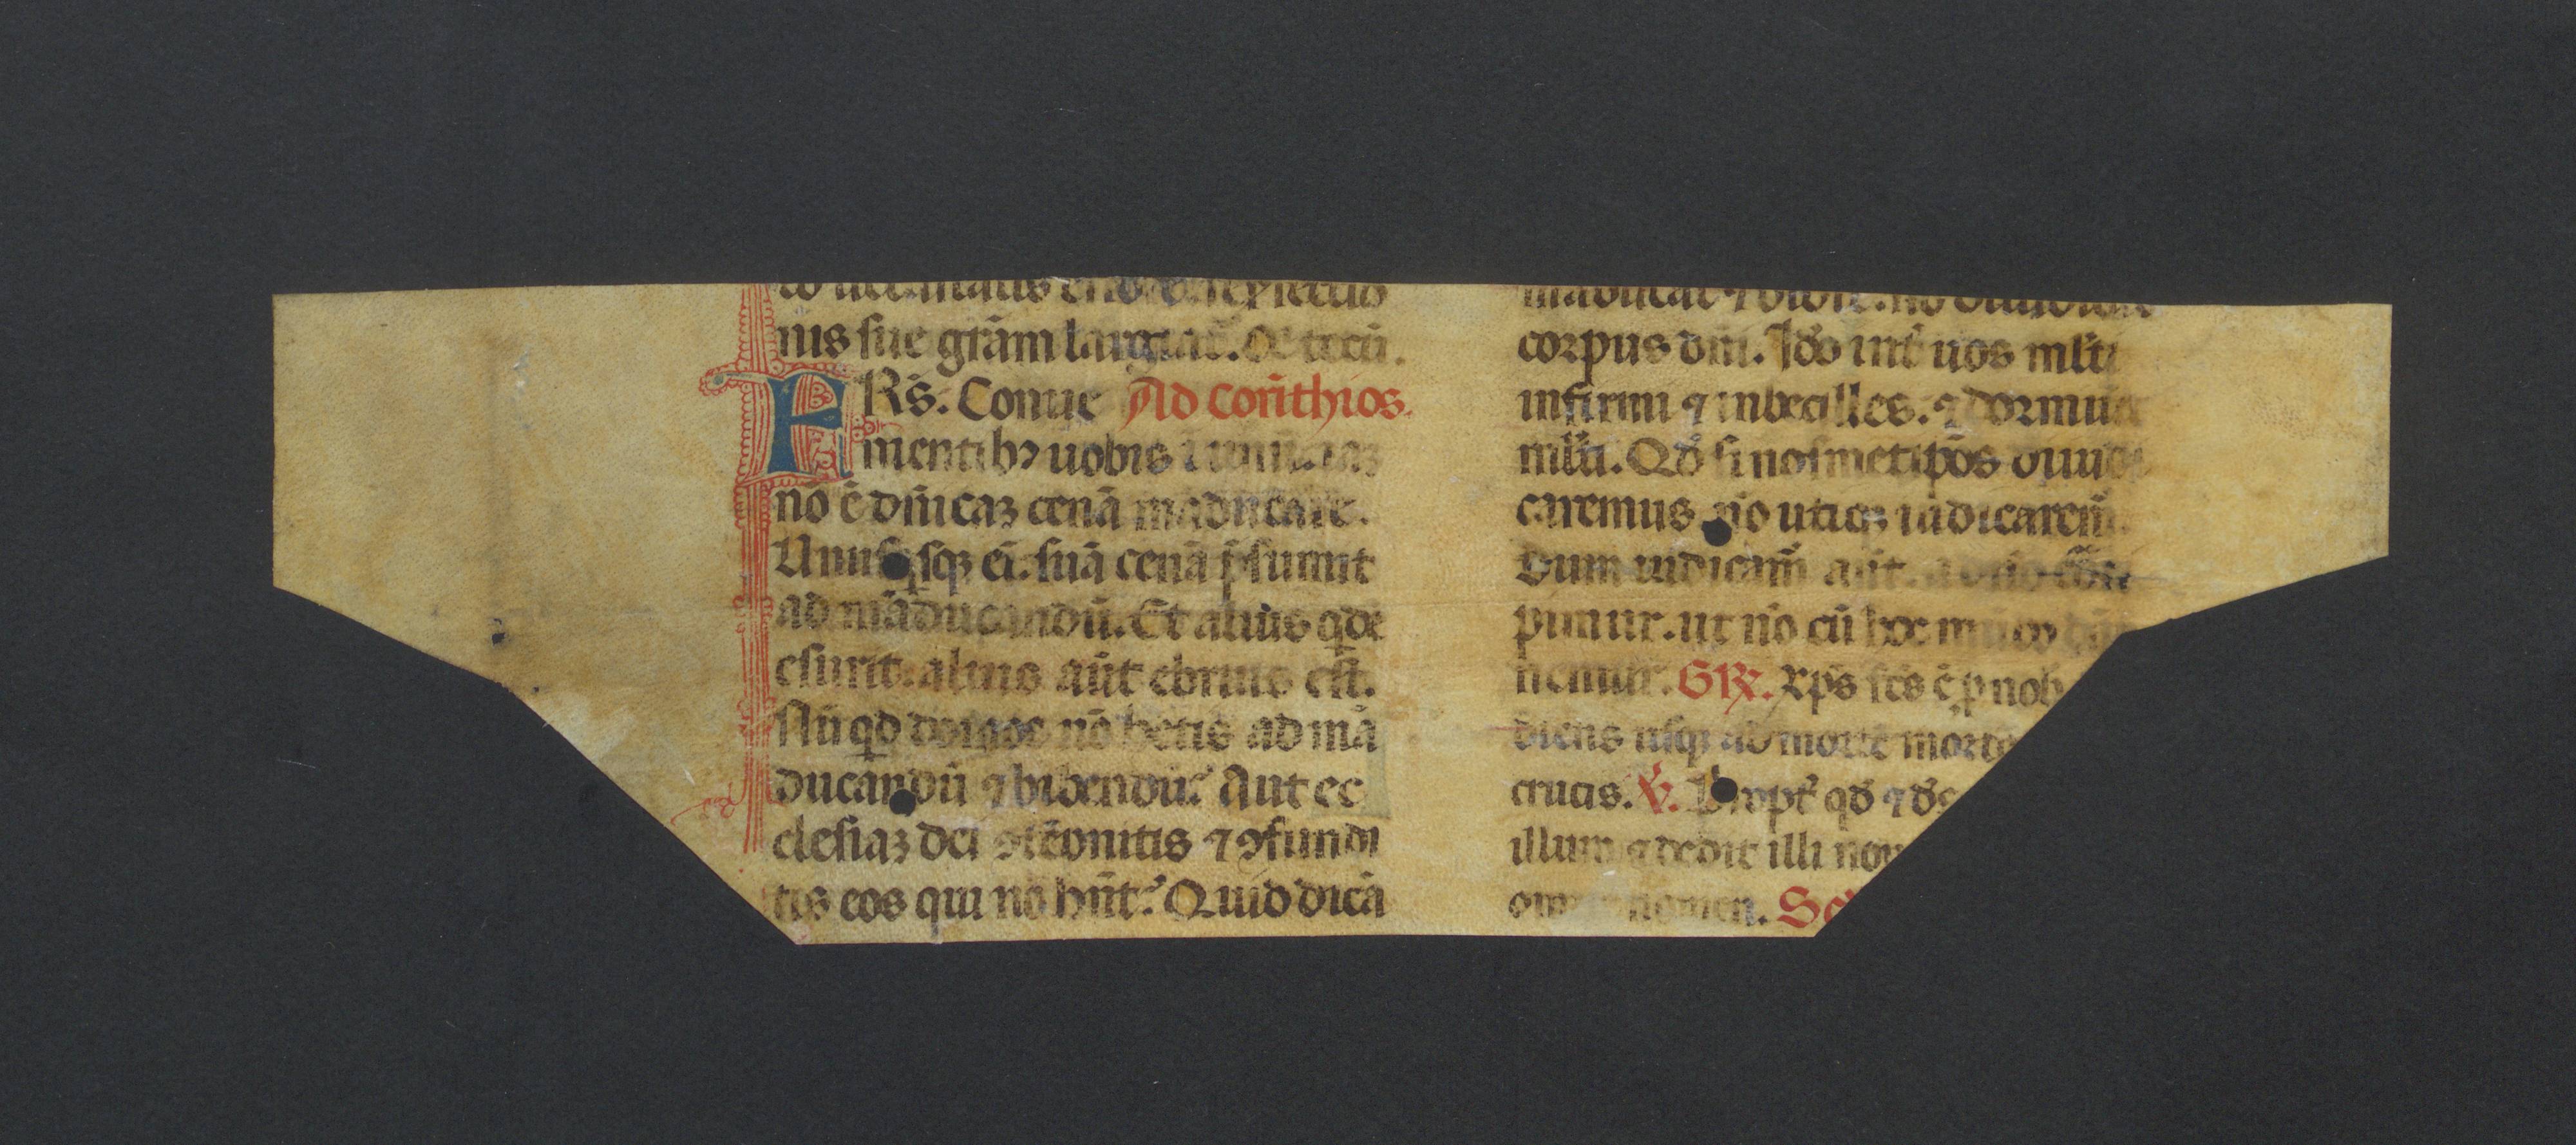 nis sue grām largiat᷑. Qͥ tecū.
FRS̄. Conue Ad corīthios.
mentibꝫ uobis ī unū. iaꝫ
nō ē dn̄icaꝫ cenā māducare.
Unusqͥsqꝫ ei. suā cenā p̄sumit
ad māducandū. Et alius qͥdē
esurit. alius aūt ebrius est.
Nūqͥd domos nō hētis ad mā
ducandū ⁊ bibendū? Aut ec
clesiaꝫ dei ꝯtēpnitis ⁊ ꝯfundi
tis eos qui nō hn̄t? Quid dicā
corpus dn̄i. Ido int᷑ uos ml̄ti
infirmi ⁊ inbecilles. ⁊ dormiūt
ml̄ti. Qd̄ si nosmetip̄os diiudi
caremus nō utiqꝫ iudicarem̄.
Dum iudicam̄ aūt.
pimur. ut nō cū hoc mūdo
nemur. GR̄. Xp̄s fc̄s ē ꝓ nob
diens usqꝫ ad mortē morte
crucis. V̄. Propt᷑ qd̄ ⁊ ds̄
illum ⁊ dedit illi nom
omne nomen. Se